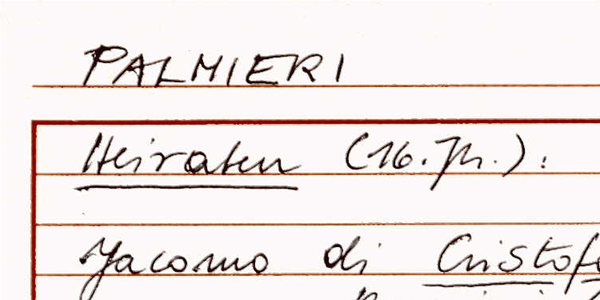 PALMIERI
Heiraten (16. Jh.):
Jacomo di Cristof